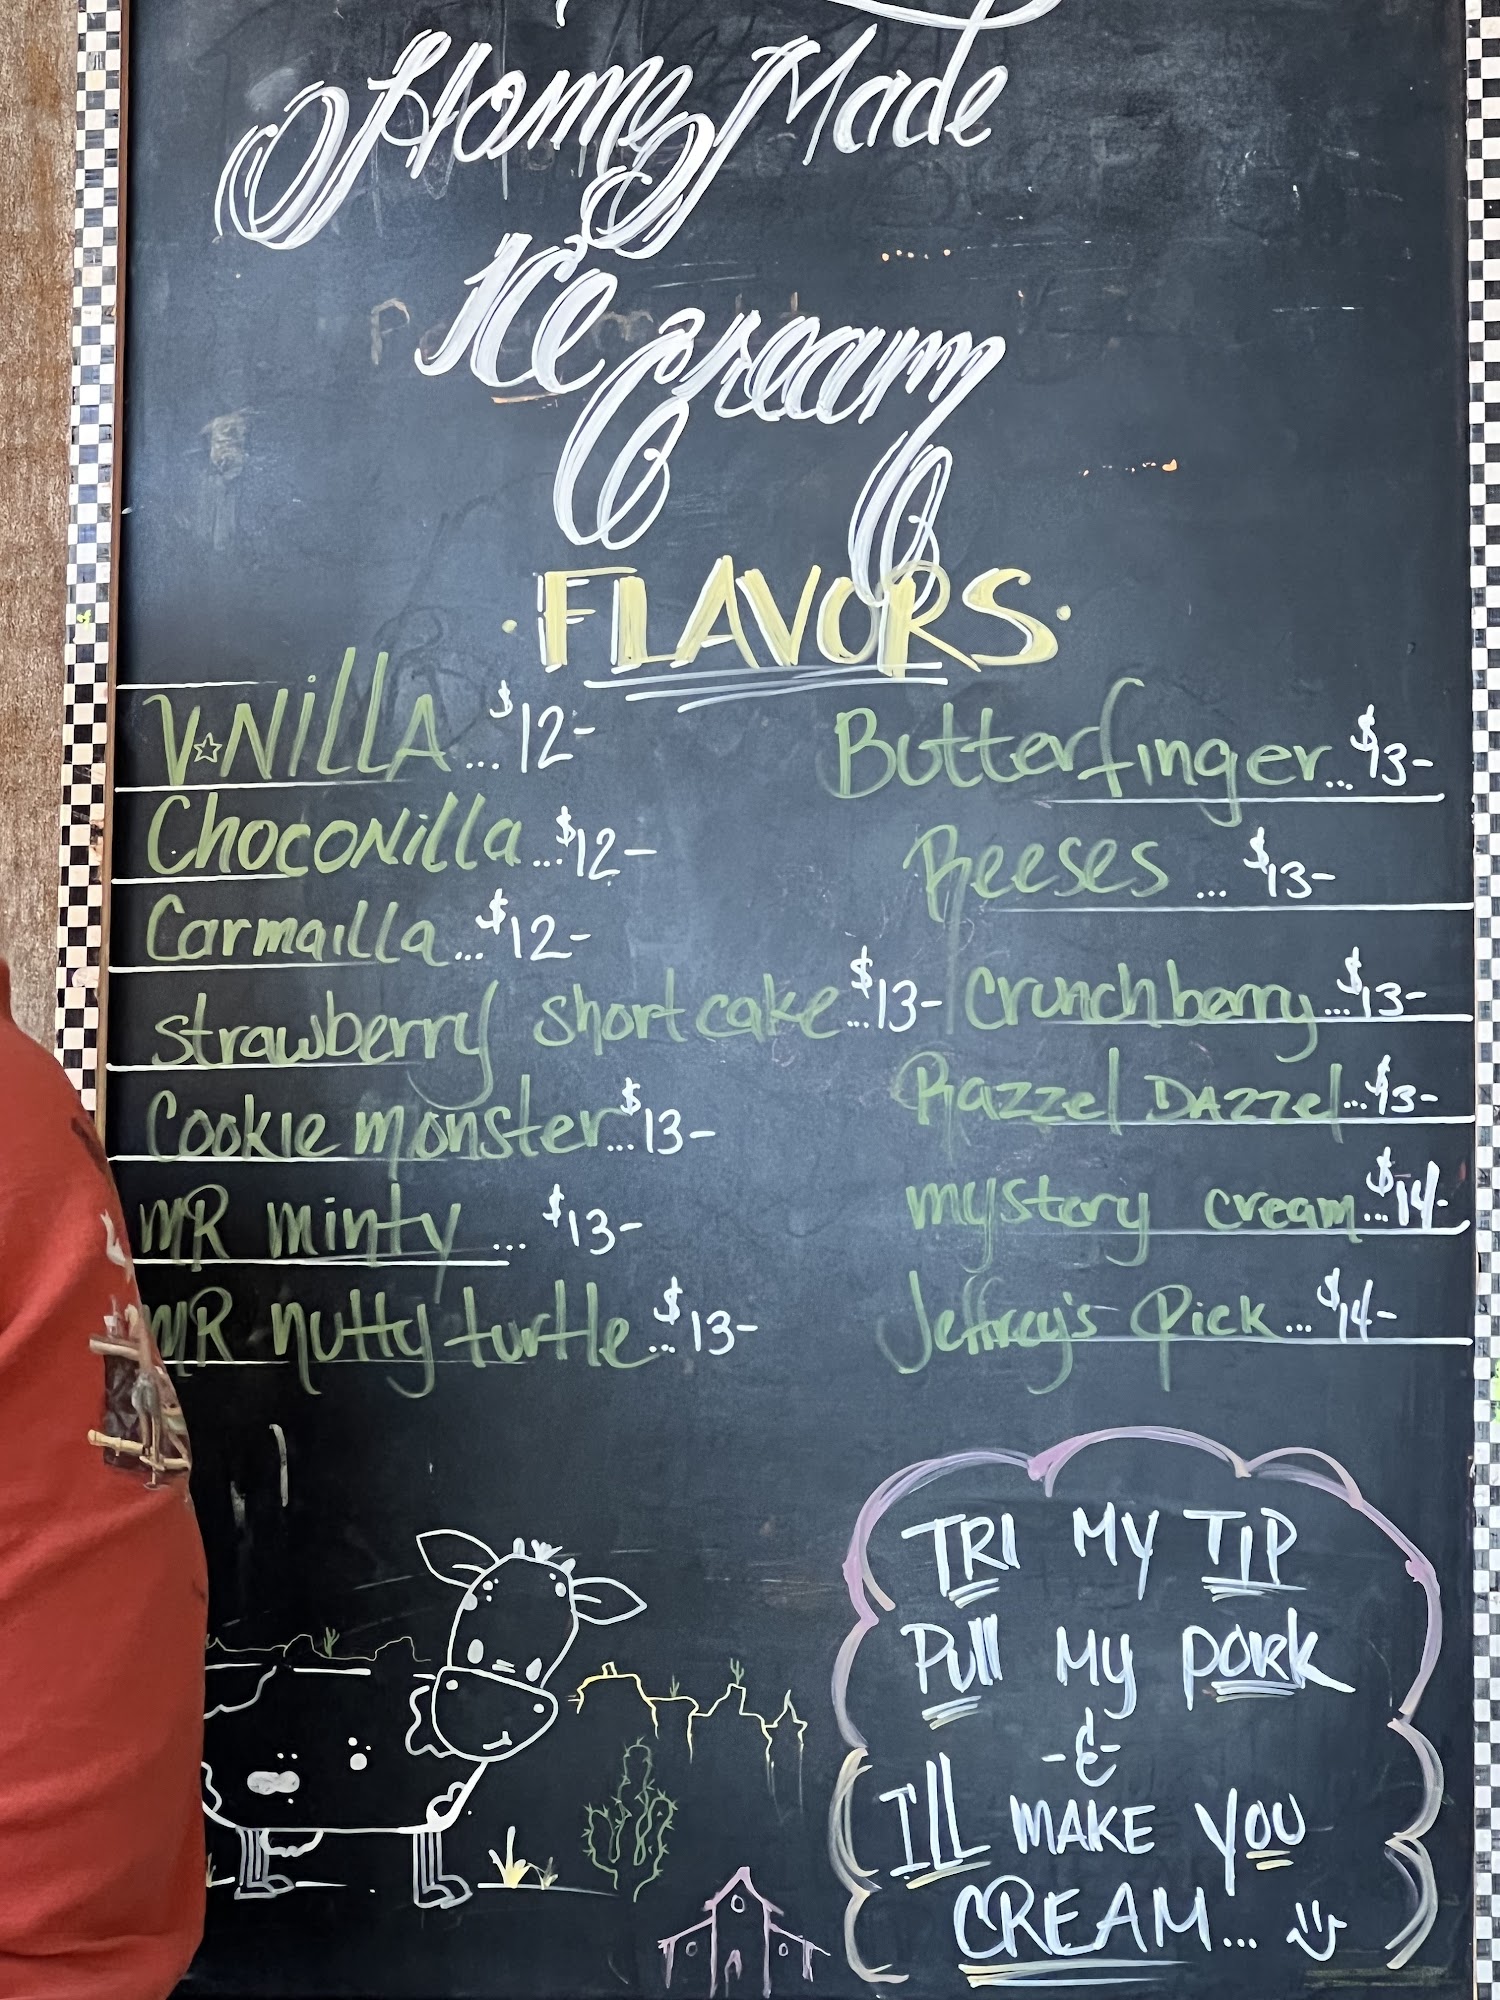 Home Made
Ice Cream
FLAVORS
V☆NillA...$12-
Choconilla...$12-
Carmailla...$12-
strawberry shortcake...$13-
Cookie monster...$13-
MR minty ... $13-
MR nutty turtle...$13-
Butterfinger...$13-
Reeses ... $13-
Crunchberry...$13-
Razzel DAzzel...$13-
mystery cream...$14-
Jeffrey's Pick...$14-
TRI MY TIP
Pull My PORK
-&-
I'll MAKE YOU
CREAM...